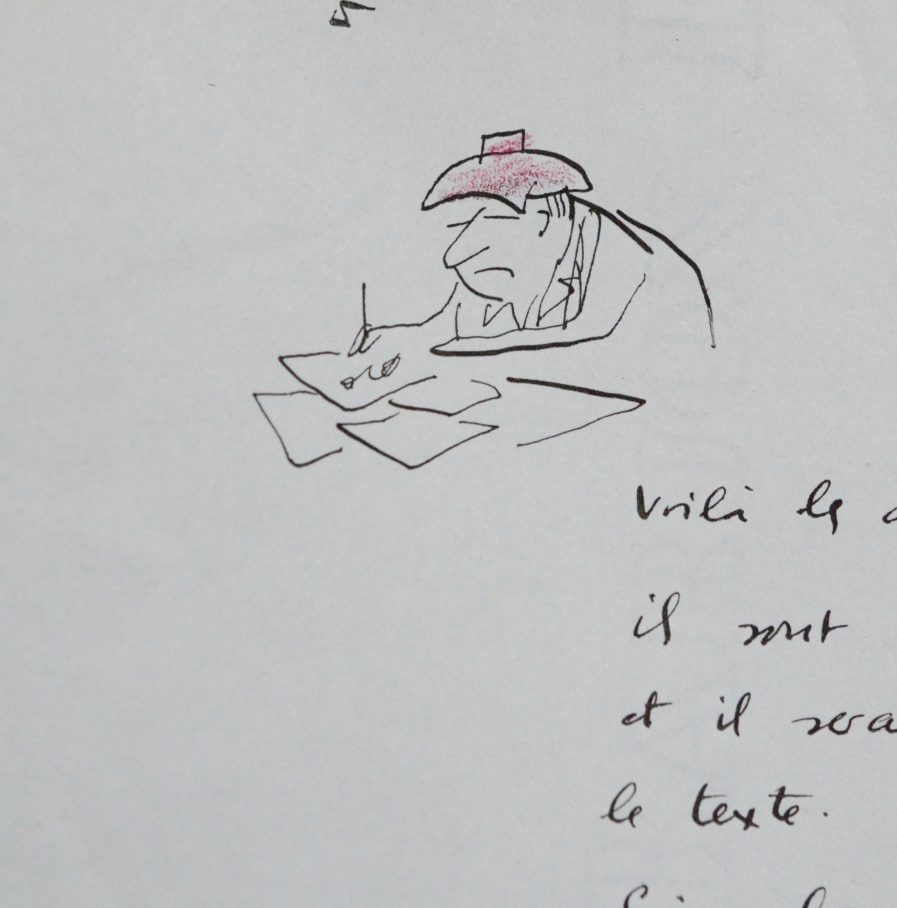 Voilà les
il sont
et il sera
le texte.